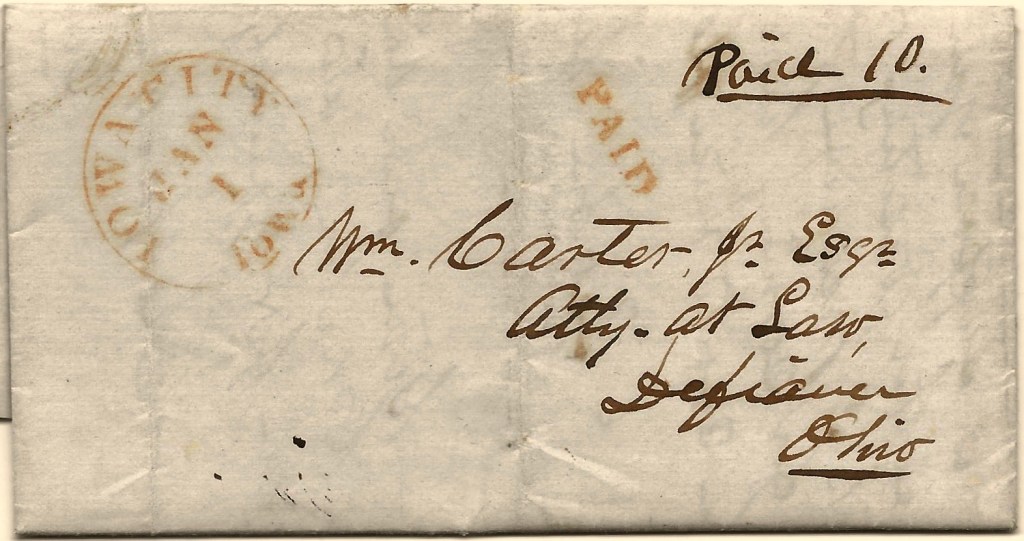 Paid 10.
IOWA CITY IOWA
JAN
1
PAID
Wm. Carter, Jr. Esqr
Atty. at Law,
Defiance
Ohio